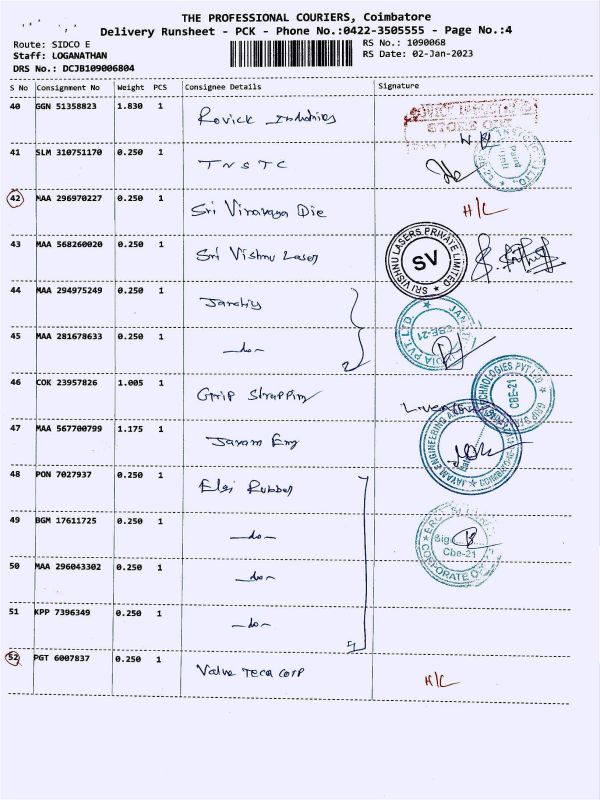 THE PROFESSIONAL COURIERS, Coimbatore
Delivery Runsheet - PCK - Phone No.:0422-3505555 - Page No.:4
Route: SIDCO E
RS No.: 1090068
Staff: LOGANATHAN
RS Date: 02-Jan-2023
DRS No.: DCJB109006804
S No Consignment No Weight PCS Consignee Details Signature
40 GGN 51358823 1.830 1 Rovick Industries
STORES OPT
41 SLM 310751170 0.250 1 TNSTC
42 MAA 296970227 0.250 1 Sri Vinayaga Die H/C
43 MAA 568260020 0.250 1 Sri Vishnu Laser
SRI VISHNU LASERS PRIVATE LIMITED
SV
44 MAA 294975249 0.250 1
CBE-21
45 MAA 281678633 0.250 1 -do-
46 COK 23957826 1.005 1 Grip Strapping
TECHNOLOGIES PVT LTD
CBE-21
47 MAA 567700799 1.175 1 Jayam Eng
JAYAM ENGINEERING
48 PON 7027937 0.250 1 Elgi Rubber
49 BGM 17611725 0.250 1 -do-
Cbe-21
CORPORATE
50 MAA 296043302 0.250 1 -do-
51 KPP 7396349 0.250 1 -do-
52 PGT 6007837 0.250 1 Valve Tech Corp H/C